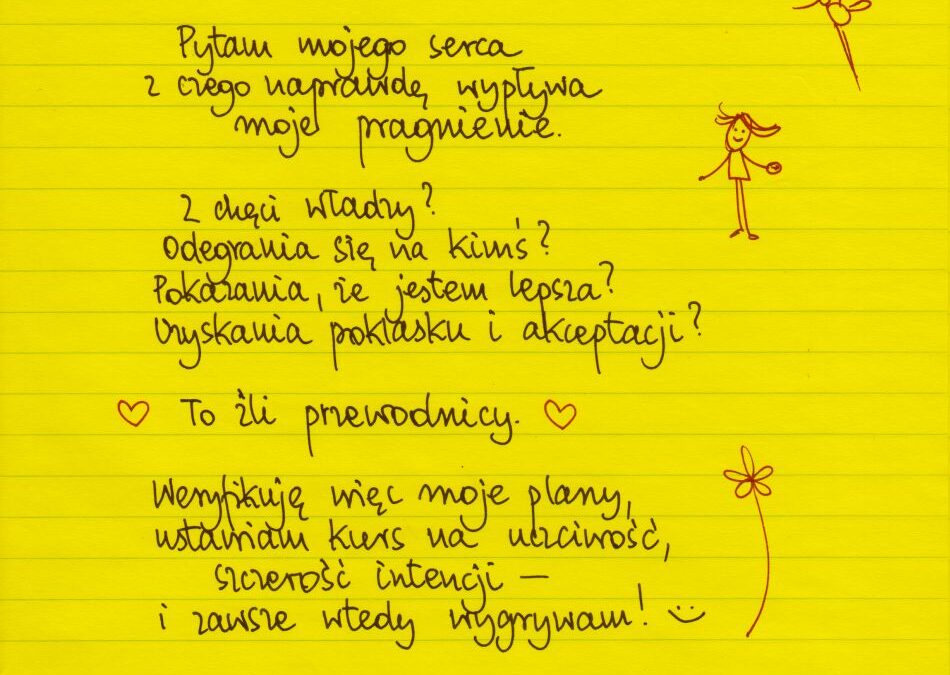 Pytam mojego serca
z czego naprawdę wypływa
moje pragnienie.
Z chęci władzy?
Odegrania się na kimś?
Pokazania, że jestem lepsza?
Uzyskania poklasku i akceptacji?
To źli przewodnicy.
Weryfikuję więc moje plany,
ustawiam kurs na uczciwość,
szczerość intencji —
i zawsze wtedy wygrywam! :)